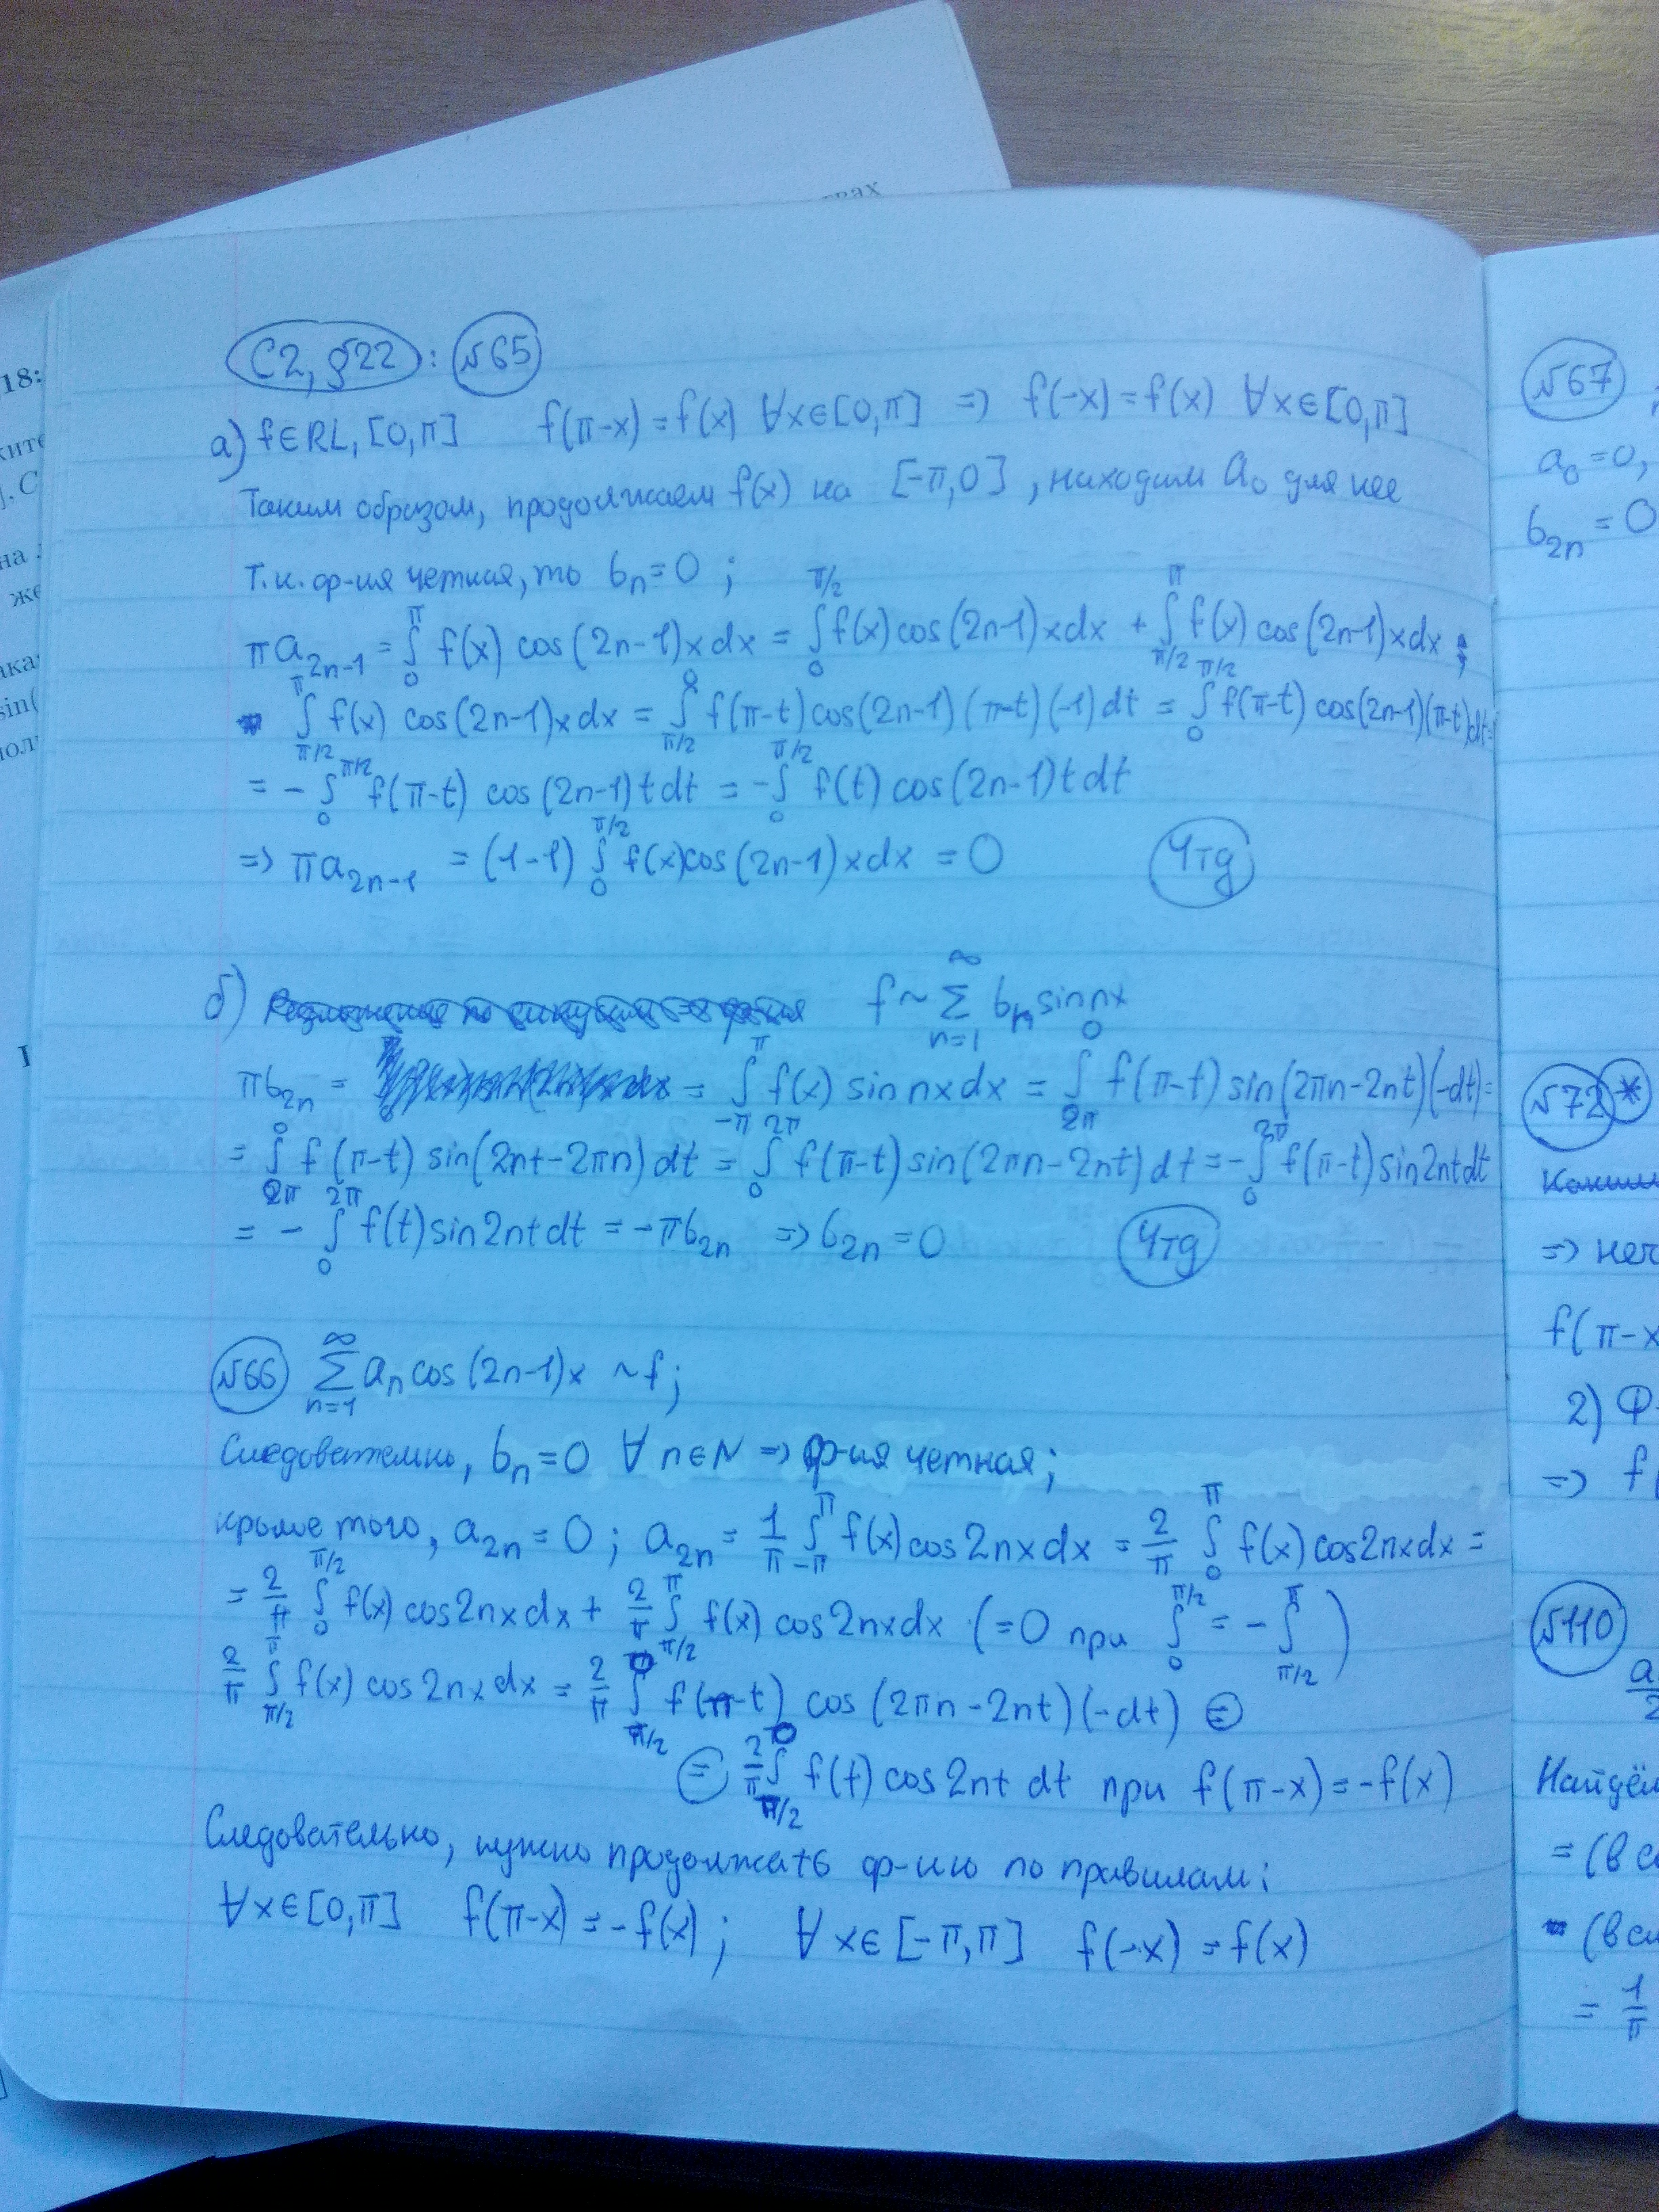 твах
18:
ките
]. С
на
же
ака
sin(
пол
С2, §22 : №65
а) f∈RL₁[0,π] f(π-x)=f(x) ∀x∈[0,π] => f(-x)=f(x) ∀x∈[0,π]
Таким образом, продолжаем f(x) на [-π,0], находим a₀ для нее
Т.к. ф-ия четная, то bₙ=0 ;
πa₂ₙ₋₁ = ∫₀^π f(x) cos(2n-1)x dx = ∫₀^{π/2} f(x) cos(2n-1)x dx + ∫_{π/2}^π f(x) cos(2n-1)x dx ;
∫_{π/2}^π f(x) cos(2n-1)x dx = ∫_{π/2}^0 f(π-t) cos(2n-1)(π-t)(-1)dt = ∫₀^{π/2} f(π-t) cos(2n-1)(π-t)dt =
= - ∫₀^{π/2} f(π-t) cos(2n-1)t dt = - ∫₀^{π/2} f(t) cos(2n-1)t dt
=> πa₂ₙ₋₁ = (1-1) ∫₀^{π/2} f(x)cos(2n-1)x dx = 0 Чтд
б) f ~ Σ_{n=1}^∞ bₙ sin nx
πb₂ₙ = = ∫_{-π}^π f(x) sin nx dx = ∫_{2π}^0 f(π-t) sin(2πn-2nt)(-dt) =
= ∫_{2π}^0 f(π-t) sin(2nt-2πn)dt = ∫₀^{2π} f(π-t) sin(2πn-2nt)dt = - ∫₀^{2π} f(π-t) sin2nt dt
= - ∫₀^{2π} f(t) sin2nt dt = -πb₂ₙ => b₂ₙ=0 Чтд
№66 Σ_{n=1}^∞ aₙ cos(2n-1)x ~ f ;
Следовательно, bₙ=0 ∀n∈N => ф-ия четная ;
кроме того, a₂ₙ=0 ; a₂ₙ = 1/π ∫_{-π}^π f(x) cos2nx dx = 2/π ∫₀^π f(x) cos2nx dx =
= 2/π ∫₀^{π/2} f(x) cos2nx dx + 2/π ∫_{π/2}^π f(x) cos2nx dx (=0 при ∫₀^{π/2} = - ∫_{π/2}^π )
2/π ∫_{π/2}^π f(x) cos2nx dx = 2/π ∫_{π/2}^0 f(π-t) cos(2πn-2nt)(-dt) =
= 2/π ∫_{π/2}^0 f(t) cos2nt dt при f(π-x)=-f(x)
Следовательно, нужно продолжать ф-ию по правилам:
∀x∈[0,π] f(π-x)=-f(x) ; ∀x∈[-π,π] f(-x)=f(x)
№67
a₀=0,
b₂ₙ=0
№72*
=> неч
f(π-x
2) Ф-
=> f(
№110
a
2
Найдём
= (в с
(в сл
= 1/π